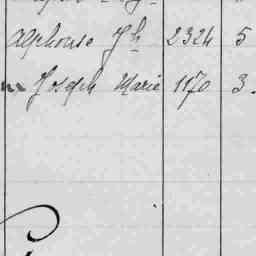 Alphonse Jh 2324 5
Joseph Marie 1170 3.